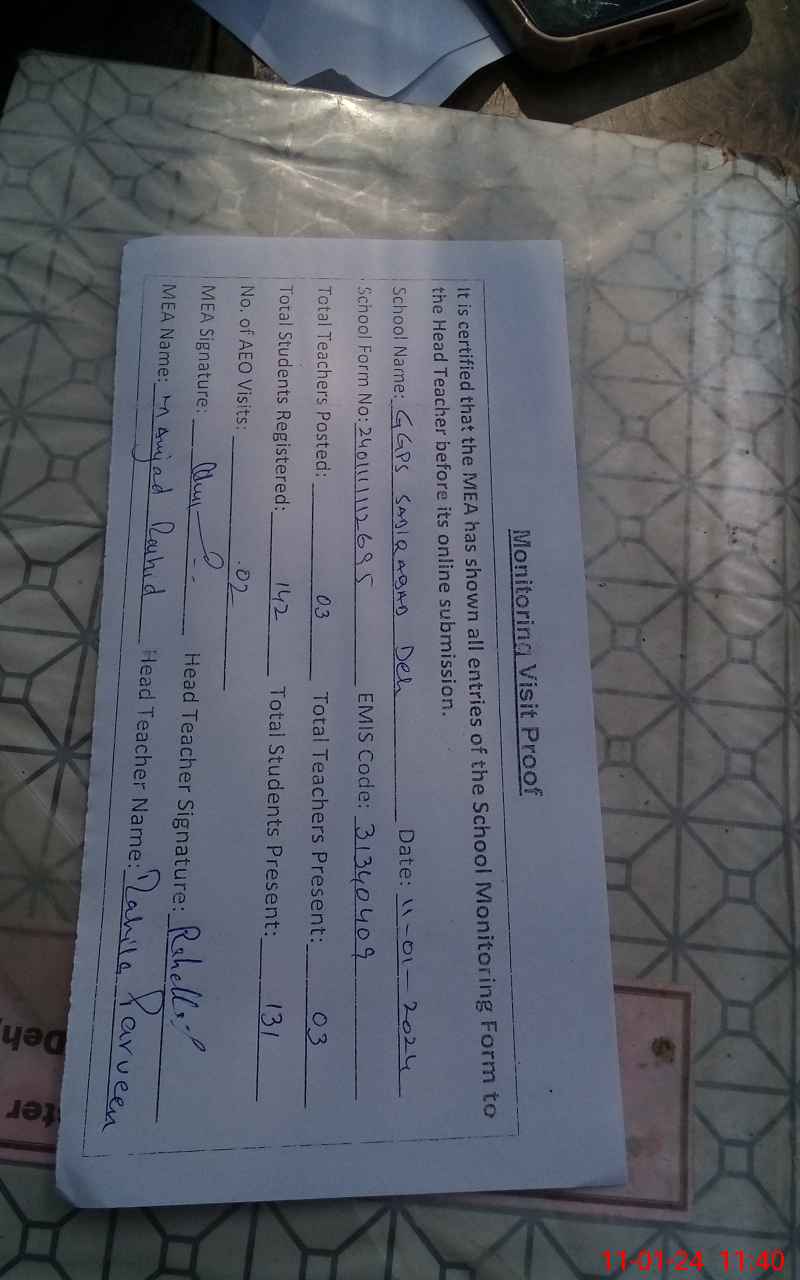 Monitoring Visit Proof
It is certified that the MEA has shown all entries of the School Monitoring Form to
the Head Teacher before its online submission.
School Name: GGPS SADIQ ABAD Deh Date: 11-01-2024
School Form No: 240111112695 EMIS Code: 31340409
Total Teachers Posted: 03 Total Teachers Present: 03
Total Students Registered: 142 Total Students Present: 131
No. of AEO Visits: 02
MEA Signature: Head Teacher Signature:
MEA Name: M Amjad Rashid Head Teacher Name: Rahila Parveen
Deh
ter
11-01-24 11:40